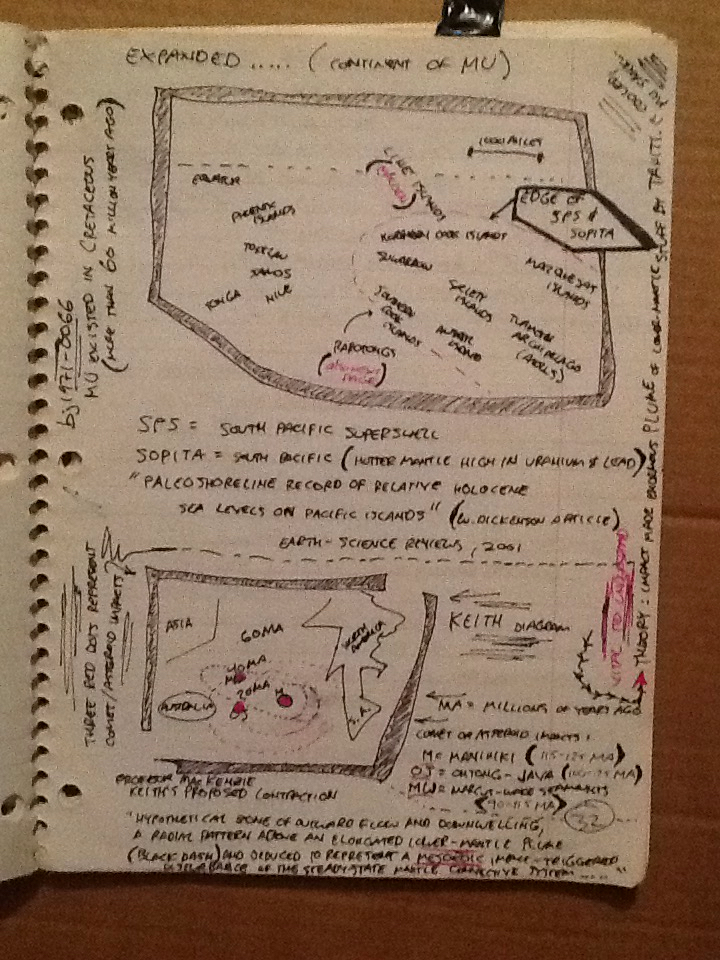 EXPANDED ..... (CONTINENT OF MU)
1000 MILES
EQUATOR
LINE ISLANDS
(MALDEN)
PHOENIX
ISLANDS
EDGE OF
SPS &
SOPITA
NORTHERN COOK ISLANDS
SUWARROW
MARQUESAS
ISLANDS
TOKELAU
SAMOA
TONGA
NIUE
SOCIETY
ISLANDS
SOUTHERN
COOK
ISLANDS
AUSTRAL
ISLANDS
TUAMOTU
ARCHIPELAGO
(ATOLLS)
RAROTONGA
bj1971-0066
MU EXISTED IN CRETACEOUS
(MORE THAN 60 MILLION YEARS AGO)
SPS = SOUTH PACIFIC SUPERSWELL
SOPITA = SOUTH PACIFIC (HOTTER MANTLE HIGH IN URANIUM & LEAD)
"PALEOSHORELINE RECORD OF RELATIVE HOLOCENE
SEA LEVELS ON PACIFIC ISLANDS" (W. DICKENSON ARTICLE)
EARTH-SCIENCE REVIEWS, 2001
THREE RED DOTS REPRESENT
COMET/ASTEROID IMPACTS
VITAL TO
THEORY: IMPACT MADE ENORMOUS PLUME OF LOWER-MANTLE STUFF BY TAHITI &
ASIA
60MA
NORTH
AMERICA
40MA
MW
20MA
M
OJ
AUSTRALIA
S.A.
KEITH DIAGRAM
MA = MILLIONS OF YEARS AGO
COMET OR ASTEROID IMPACTS:
M = MANIHIKI (115-125 MA)
OJ = ONTONG-JAVA
MW = MARCUS-WAKE SEAMOUNTS
(90-115 MA)
32
PROFESSOR MACKENZIE
KEITH'S PROPOSED CONTRACTION
"HYPOTHETICAL ZONE OF OUTWARD FLOW AND DOWNWELLING,
A RADIAL PATTERN ABOVE AN ELONGATED LOWER-MANTLE PLUME
(BLACK DASH) AND DEDUCED TO REPRESENT A MESOZOIC IMPACT-TRIGGERED
DISTURBANCE OF THE STEADY-STATE MANTLE CONVECTIVE SYSTEM ....."